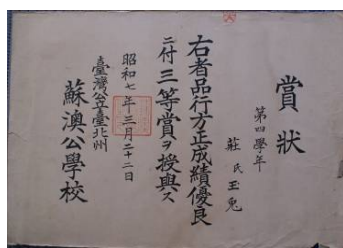 賞狀
第四學年
莊氏玉兔
右者品行方正成績優良
ニ付三等賞ヲ授與ス
昭和七年三月二十二日
臺灣公立臺北州
蘇澳公學校